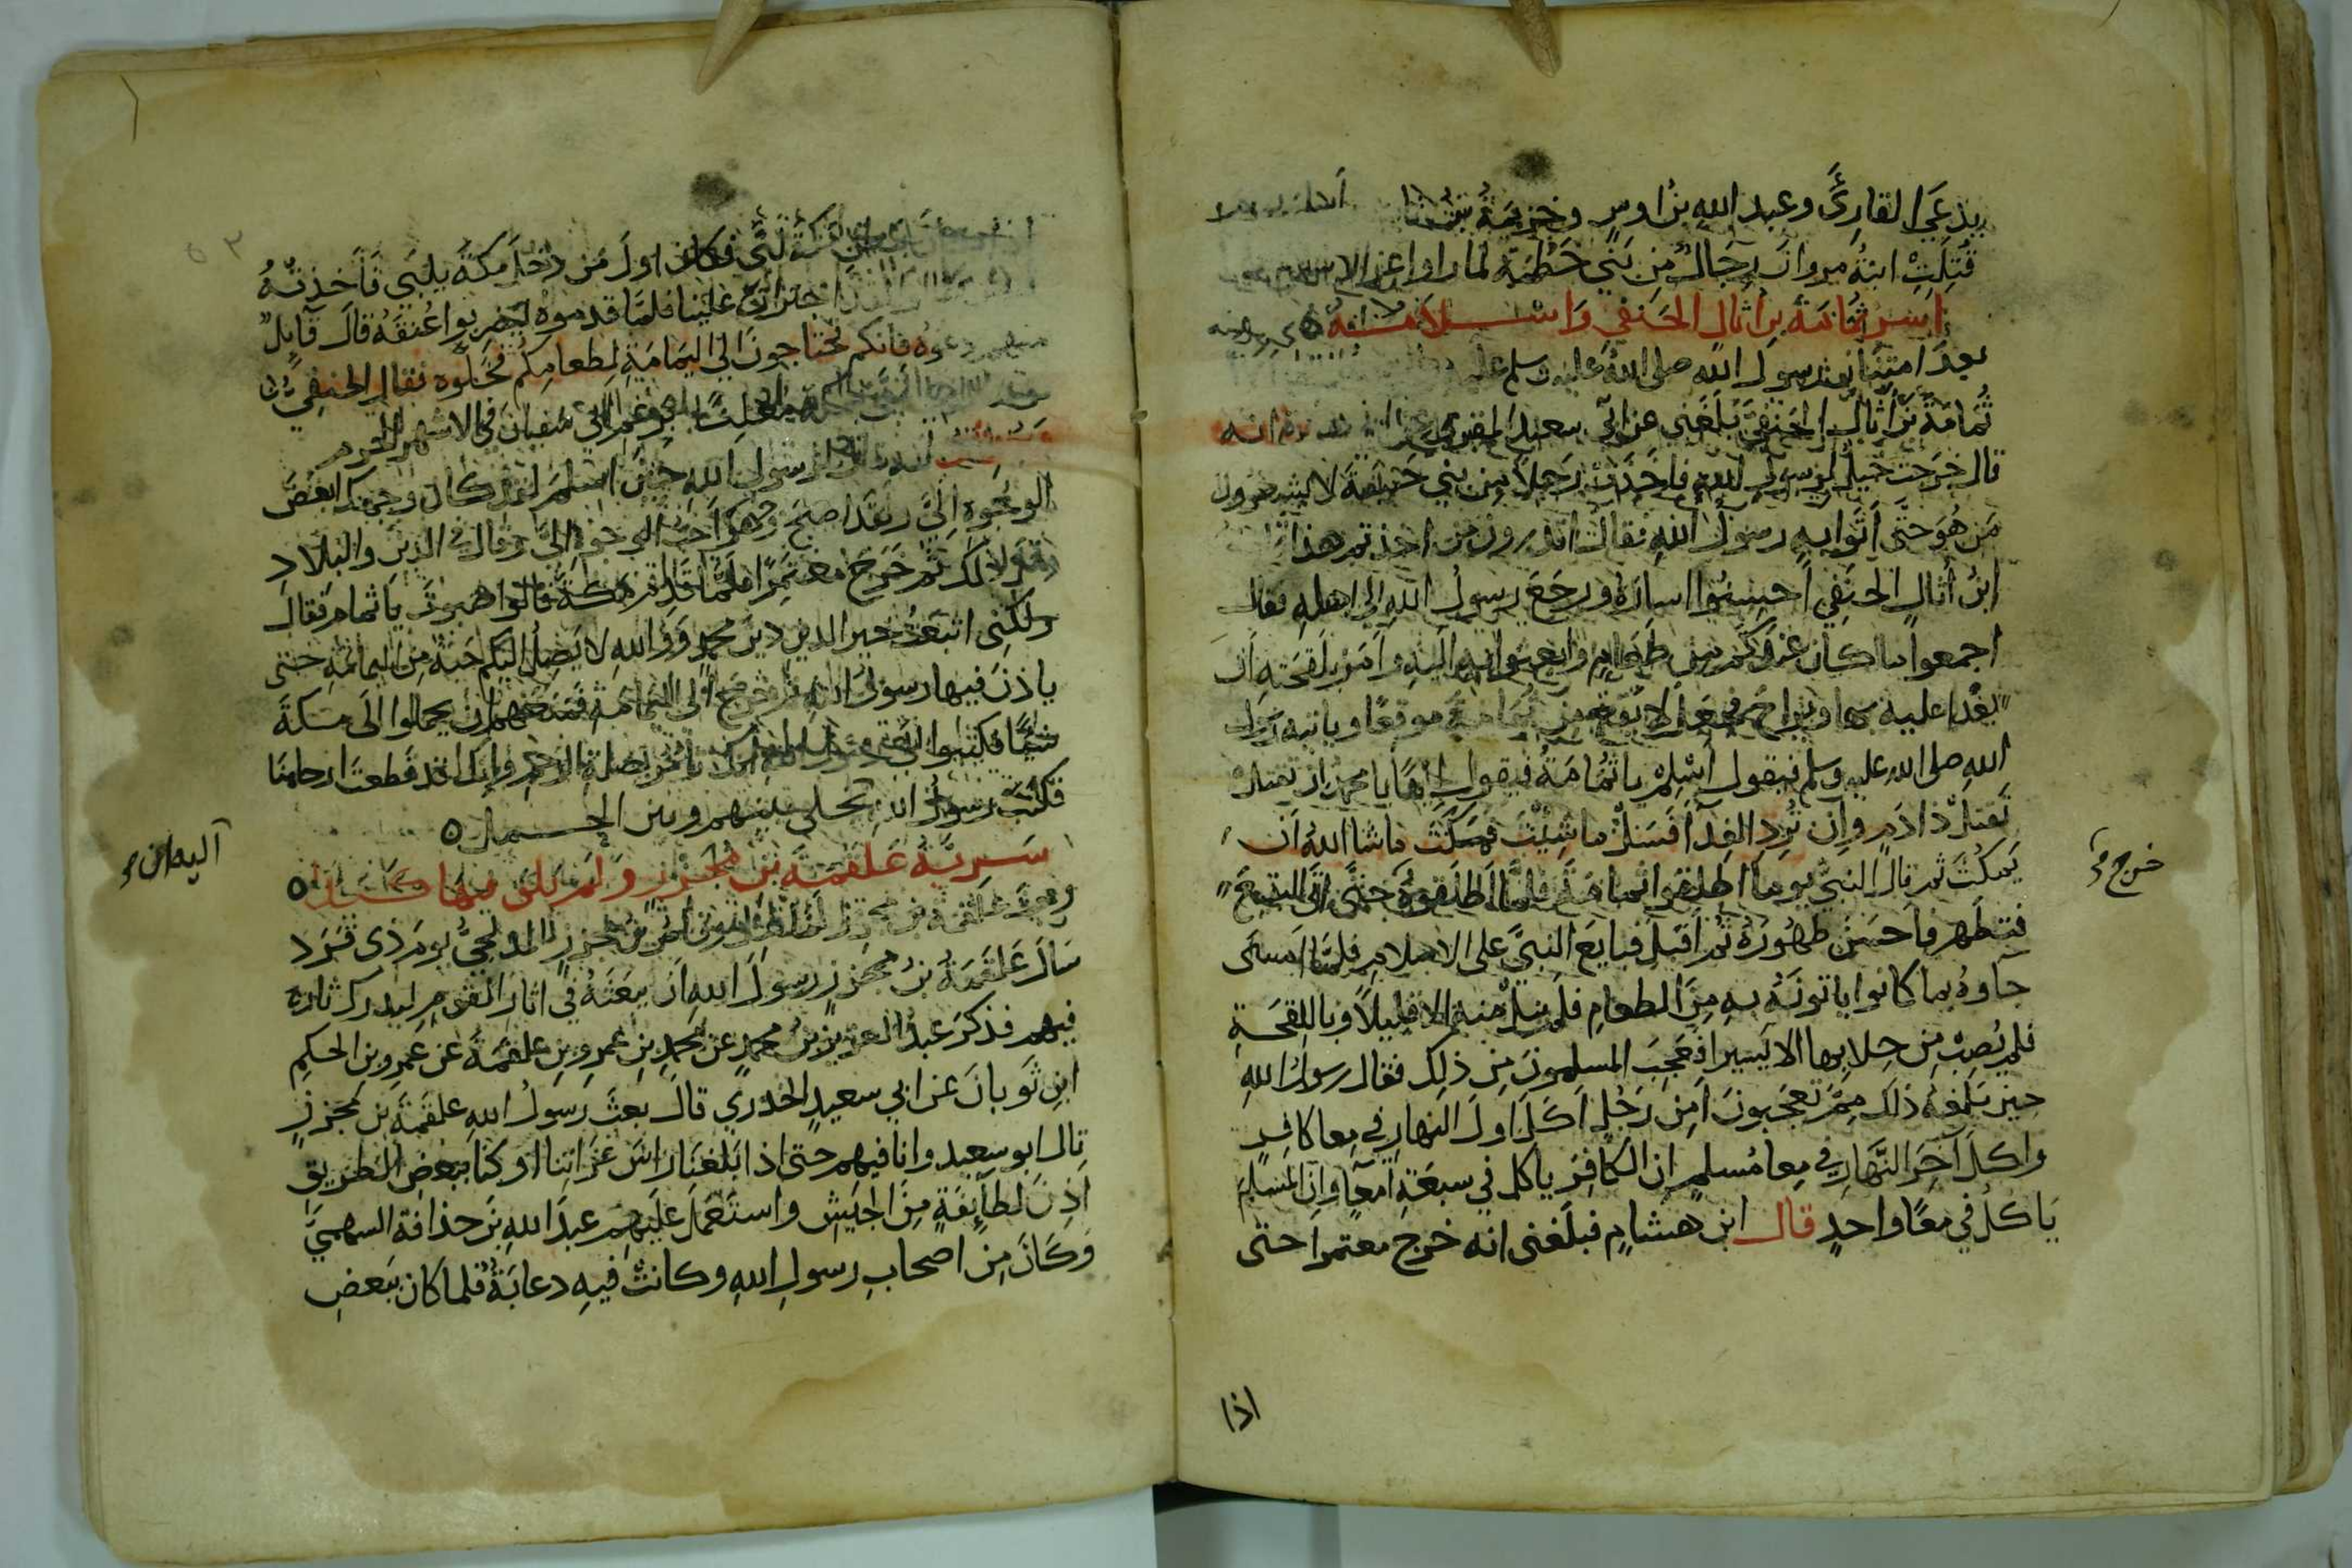 يدعي القارئ وعبد الله بن اوس وخزيمة
قتلت ابنة مروان رجال من بني خطمة لما راوا عز الاسلام
اسر ثمامة بن اثال الحنفي واسلامه
بعد امتنان رسول الله صلى الله عليه وسلم عليه
ثمامة بن اثال الحنفي بلغني عن ابي سعيد المقبري عن انه
قال خرجت خيل لرسول الله فاخذت رجلا من بني حنيفة لا يشعرون
من هو حتى اتوا به رسول الله فقال اتدرون من اخذتم هذا
ابن اثال الحنفي احسنوا اساره ورجع رسول الله الى اهله فقال
اجمعوا ما كان عندكم من طعام وابعثوا به اليه وامر بلقحته ان
يغدا عليه بها ويراح فجعل لا يقع من ثمامة موقعا وياتيه رسول
الله صلى الله عليه وسلم فيقول اسلم يا ثمامة فيقول ايها يا محمد ان تقتل
تقتل ذا دم وان ترد الفدا فسل ما شيت فمكث ما شا الله ان
يمكث ثم قال النبي يوما اطلقوا ثمامة فلما اطلقوه حتى اتى البقيع
خرج
فتطهر فاحسن طهوره ثم اقبل فبايع النبي على الاسلام فلما امسى
جاوه بما كانوا ياتونه به من الطعام فلم ينل منه الا قليلا وباللقحة
فلم يصب من حلابها الا يسيرا فعجب المسلمون من ذلك فقال رسول الله
حين بلغه ذلك مم تعجبون امن رجل اكل اول النهار في معا كافر
واكل آخر النهار في معا مسلم ان الكافر ياكل في سبعة امعا وان المسلم
ياكل في معا واحد قال ابن هشام فبلغني انه خرج معتمرا حتى
اذا
مكة لبى فكان اول من دخل مكة يلبي فاخذته
اجترات علينا فلما قدموه ليضربوا عنقه قال قايل
منهم دعوه فانكم تحتاجون الى اليمامة لطعامكم فخلوه فقال الحنفي
ابي سفيان في الاشهر الحرم
لرسول الله حين اسلم لقد كان وجهك ابغض
الوجوه الي ولقد اصبح وهو احب الوجوه الي وقال في الدين والبلاد
مثل ذلك ثم خرج معتمرا فلما قدم مكة قالوا صبوت يا ثمام فقال
ولكني اتبعت خير الدين دين محمد ووالله لا يصل اليكم حبة من اليمامة حتى
ياذن فيها رسول الله ثم خرج الى اليمامة فمنعهم ان يحملوا الى مكة
شيا فكتبوا الى رسول الله انك تامر بصلة الرحم وانك قد قطعت ارحامنا
فكتب رسول الله يخلي بينهم وبين الحمل
اليه ان
سرية علقمة بن مجزز ولم يلق فيها كيدا
وبعث علقمة بن مجزز لما قتل وقاص بن مجزز المدلجي يوم ذي قرد
سال علقمة بن مجزز رسول الله ان يبعثه في اثار القوم ليدرك ثاره
فيهم فذكر عبد العزيز بن محمد عن محمد بن عمرو بن علقمة عن عمرو بن الحكم
ابن ثوبان عن ابي سعيد الخدري قال بعث رسول الله علقمة بن مجزز
قال ابو سعيد وانا فيهم حتى اذا بلغنا راس غزاتنا او كنا ببعض الطريق
اذن لطايفة من الجيش واستعمل عليهم عبد الله بن حذافة السهمي
وكان من اصحاب رسول الله وكانت فيه دعابة فلما كان ببعض